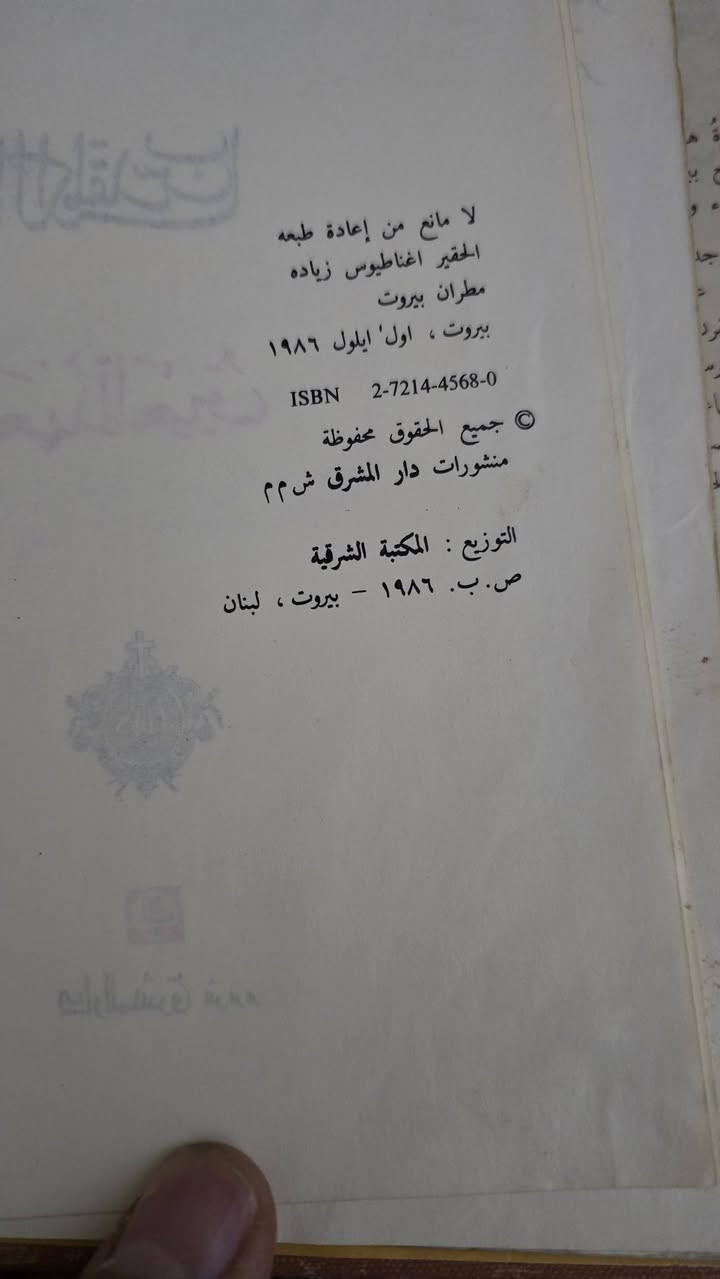 لا مانع من إعادة طبعه
الحقير اغناطيوس زياده
مطران بيروت
بيروت ، اول ايلول ١٩٨٦
ISBN 2-7214-4568-0
© جميع الحقوق محفوظة
منشورات دار المشرق ش م م
التوزيع : المكتبة الشرقية
ص. ب. ١٩٨٦ – بيروت ، لبنان